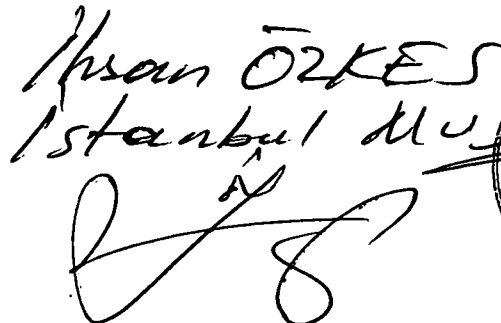 İhsan ÖZKES
İstanbul